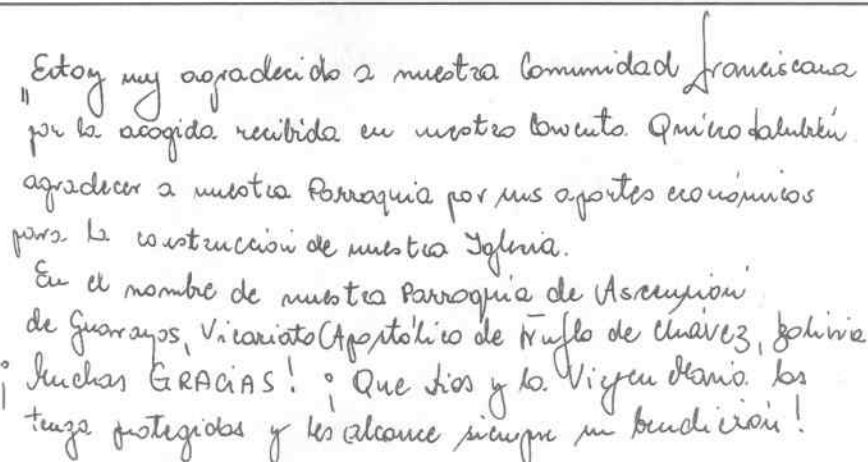 "Estoy muy agradecido a nuestra Comunidad franciscana
por la acogida recibida en nuestro Convento. Quiero también
agradecer a nuestra Parroquia por sus aportes económicos
para la construcción de nuestra Iglesia.
En el nombre de nuestra Parroquia de Ascensión
de Guarayos, Vicariato Apostólico de Ñuflo de Chávez, Bolivia
¡Muchas GRACIAS! ¡Que Dios y la Virgen María los
tenga protegidos y les alcance siempre su bendición!